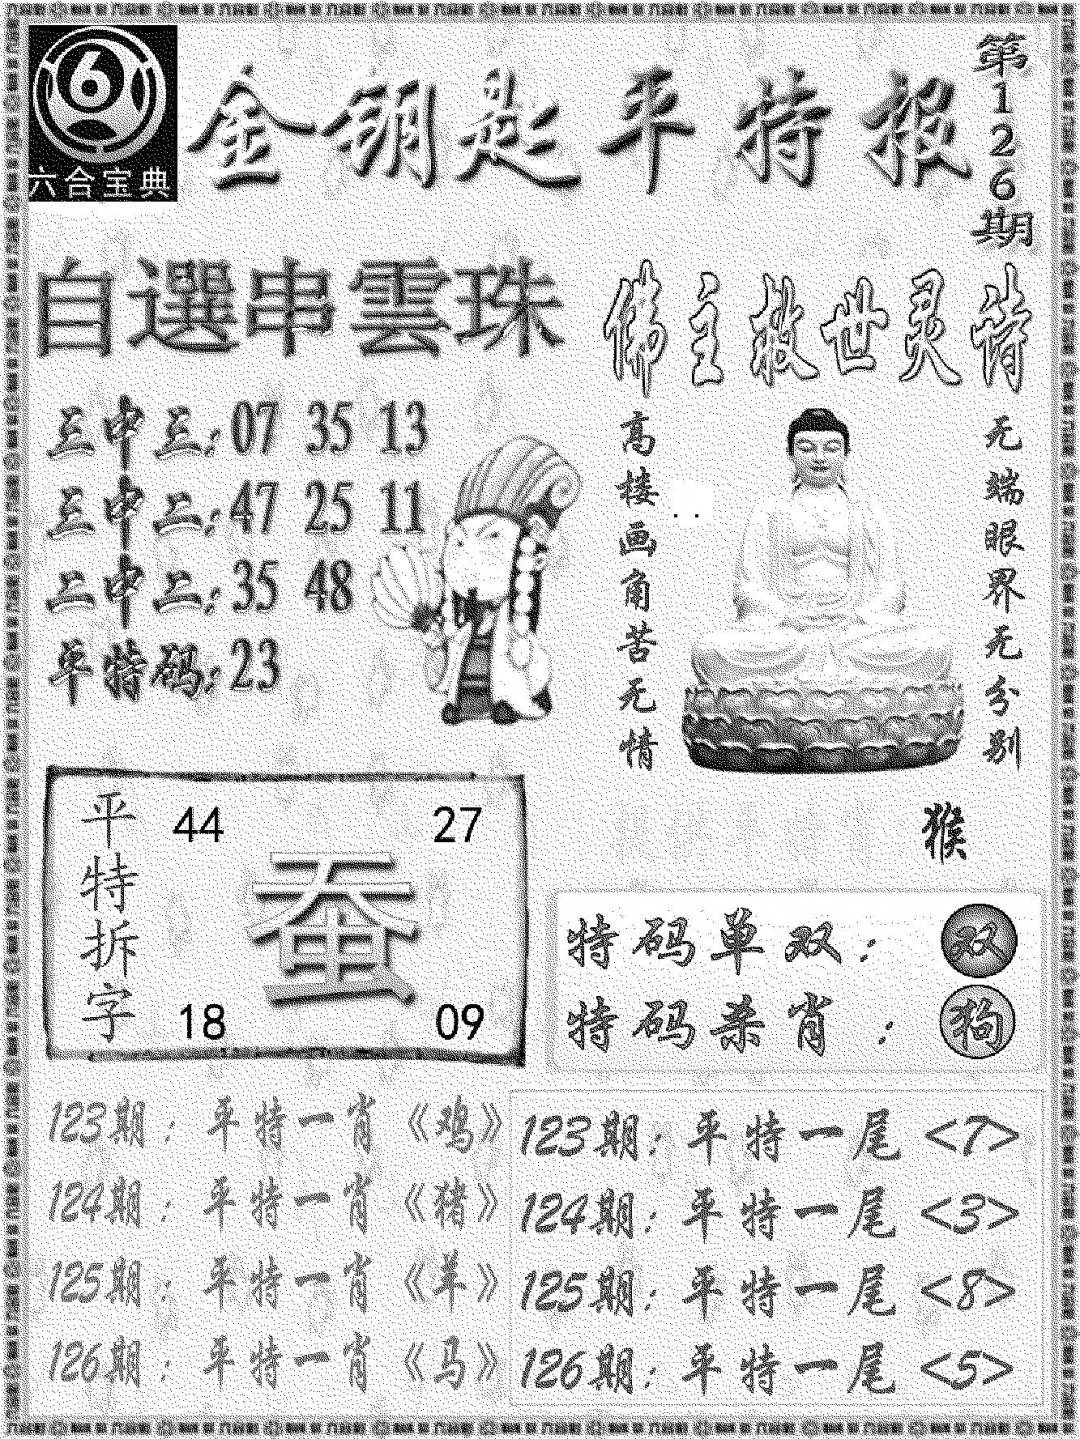 6
六合宝典
金钥匙平特报
第126期
自選串雲珠
三中三:07 35 13
三中二:47 25 11
二中二:35 48
单特码:23
佛主救世灵诗
高楼画角苦无情
无端眼界无分别
猴
平特拆字
44 27
蚕
18 09
特码单双:双
特码杀肖:狗
123期:平特一肖《鸡》
124期:平特一肖《猪》
125期:平特一肖《羊》
126期:平特一肖《马》
123期:平特一尾<7>
124期:平特一尾<3>
125期:平特一尾<8>
126期:平特一尾<5>